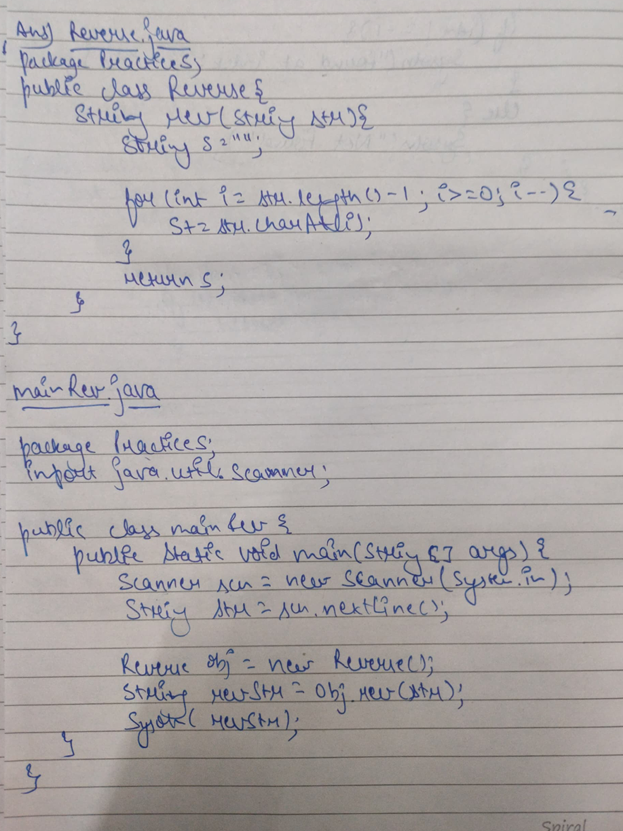 Ans) Reverse.java
package Practices;
public class Reverse{
String rev(String str){
String s="";
for(int i= str.length()-1; i>=0; i--){
S+=str.charAt(i);
}
return s;
}
}
mainRev.java
package Practices;
import java.util.Scanner;
public class mainRev {
public static void main(String [] args) {
Scanner scn = new Scanner(System.in);
String str = scn.nextLine();
Reverse obj = new Reverse();
String revStr = obj.rev(str);
Sysout( revStr);
}
}
Spiral